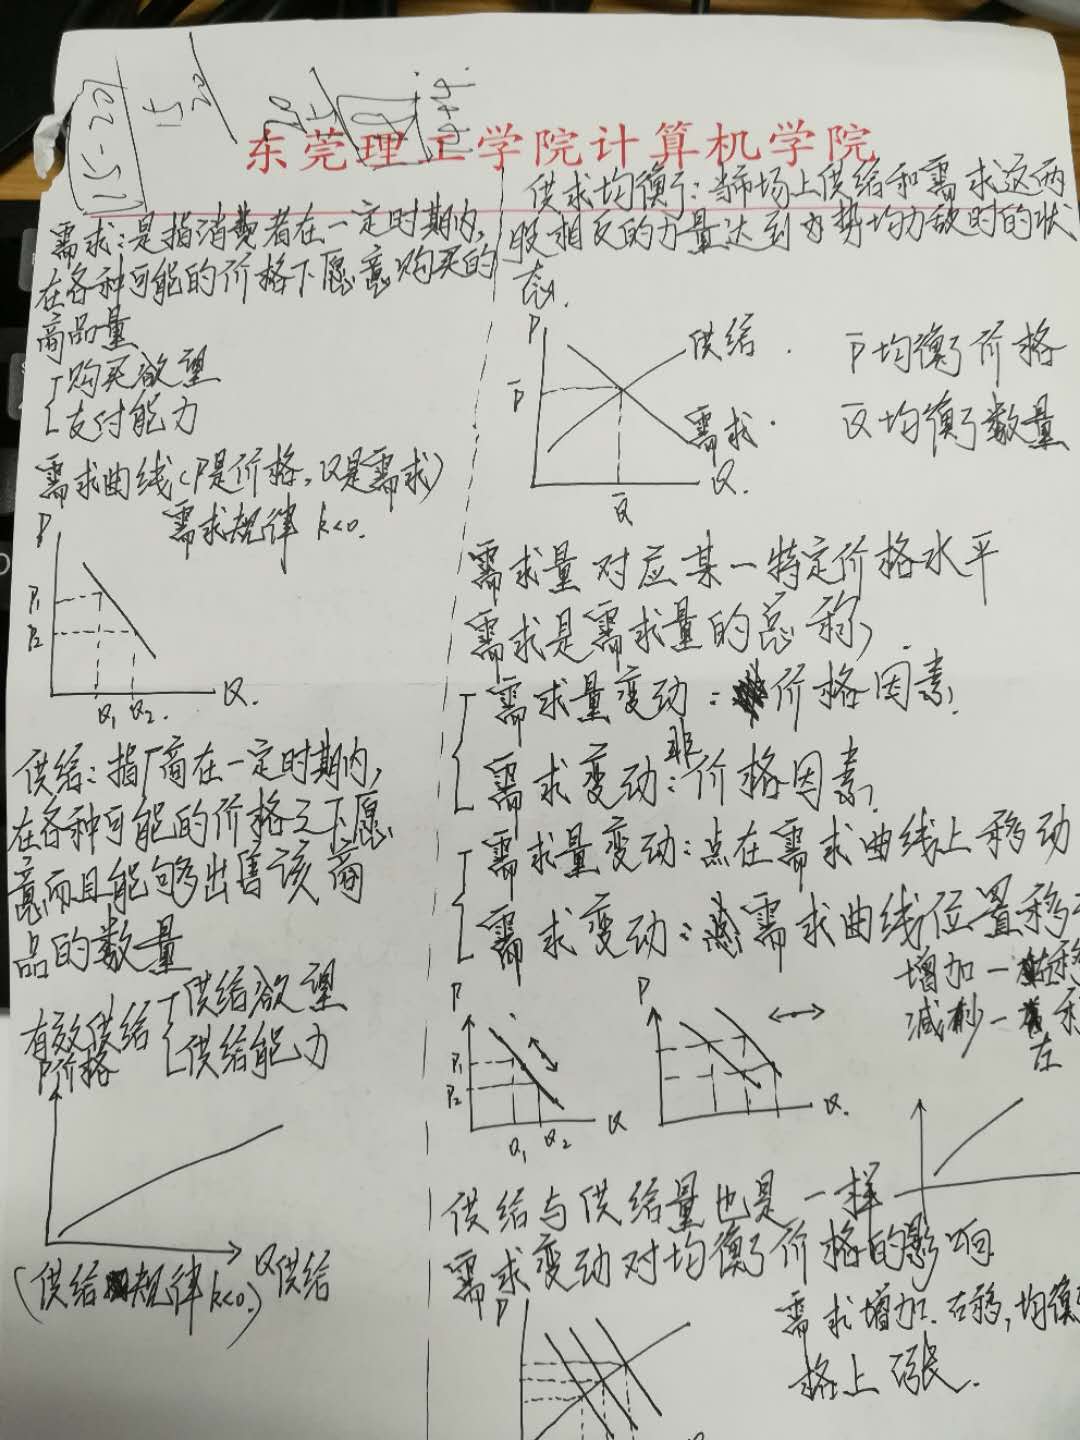 15-20
15
20
20
15
东莞理工学院计算机学院
需求:是指消费者在一定时期内,
在各种可能的价格下愿意购买的
商品量
购买欲望
支付能力
需求曲线(P是价格,Q是需求)
需求规律 k<0.
P
P1
P2
Q1 Q2.
Q.
供给:指厂商在一定时期内,
在各种可能的价格之下愿
意而且能够出售该商
品的数量
有效供给
供给欲望
供给能力
P价格
Q供给
(供给规律k<0.)
供求均衡:当市场上供给和需求这两
股相反的力量达到势均力敌时的状
态.
P
供给.
P̅
需求.
Q.
Q̅
P̅均衡价格
Q̅均衡数量
需求量对应某一特定价格水平
需求是需求量的总称,
需求量变动:价格因素,
需求变动:非价格因素,
需求量变动:点在需求曲线上移动
需求变动:需求曲线位置移
增加一右移
减少一左移
P
P1
P2
Q1 Q2
Q
P
Q.
供给与供给量也是一样
需求变动对均衡价格的影响
需求增加.右移,均衡
格上涨.
P
Q